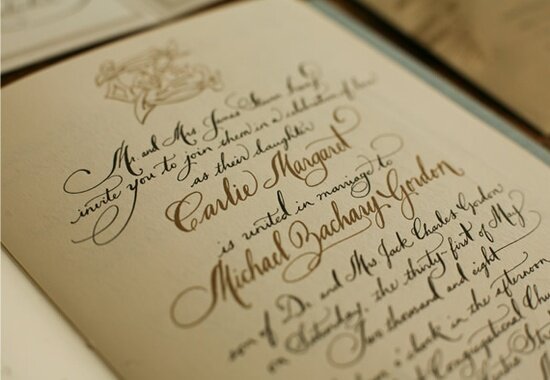 Mr. and Mrs. James
invite you to join them in a celebration of love
as their daughter
Carlie Margaret
is united in marriage to
Michael Zachary Gordon
son of Dr. and Mrs. Jack Charles Gordon
on Saturday, the thirty-first of May
Two thousand and eight
o'clock in the afternoon
Congregational